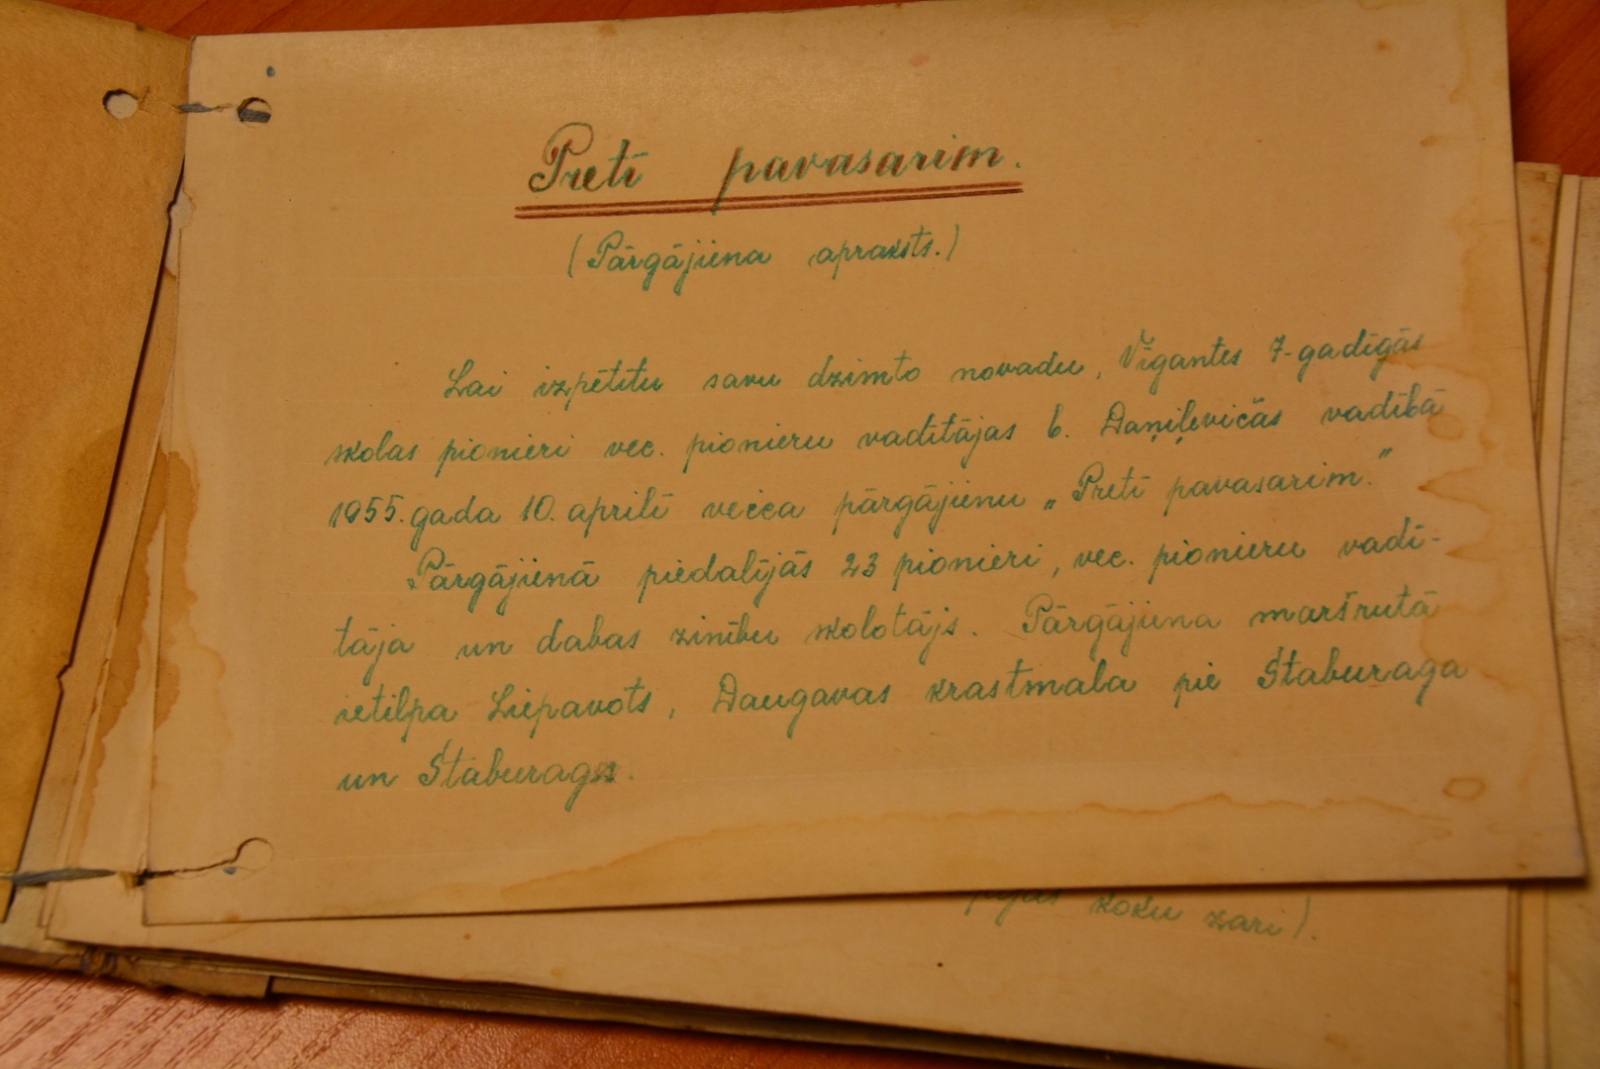 Pretī pavasarim.
(Pārgājiena apraksts.)
Lai izpētītu savu dzimto novadu, Vīgantes 7-gadīgās
skolas pionieri vec. pionieru vadītājas b. Daņiļevičas vadībā
1955. gada 10. aprīlī veica pārgājienu „Pretī pavasarim."
Pārgājienā piedalījās 23 pionieri, vec. pionieru vadī-
tāja un dabas zinību skolotājs. Pārgājiena maršrutā
ietilpa Liepavots, Daugavas krastmala pie Staburaga
un Staburags.
koku zari).